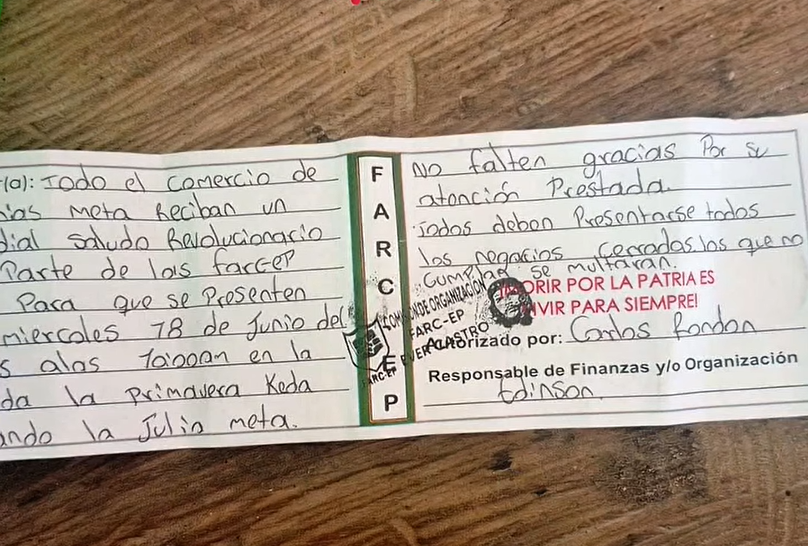 r(a): Todo el comercio de
ias meta Reciban un
dial saludo Revolucionario
Parte de las farcep
Para que se Presenten
miercoles 18 de Junio del
s alas 10:00am en la
da la Primavera Keda
ando la Julia meta.
FARC EP
No falten gracias Por su
atención Prestada
Todos deben Presentarse todos
los negocios cerrados los que no
cumplan se multaran.
¡MORIR POR LA PATRIA ES
VIVIR PARA SIEMPRE!
DE ORGANIZACIÓN
FARC-EP
EVER CASTRO
FARC-EP
Autorizado por: Carlos Rondon
Responsable de Finanzas y/o Organización
Edinson.